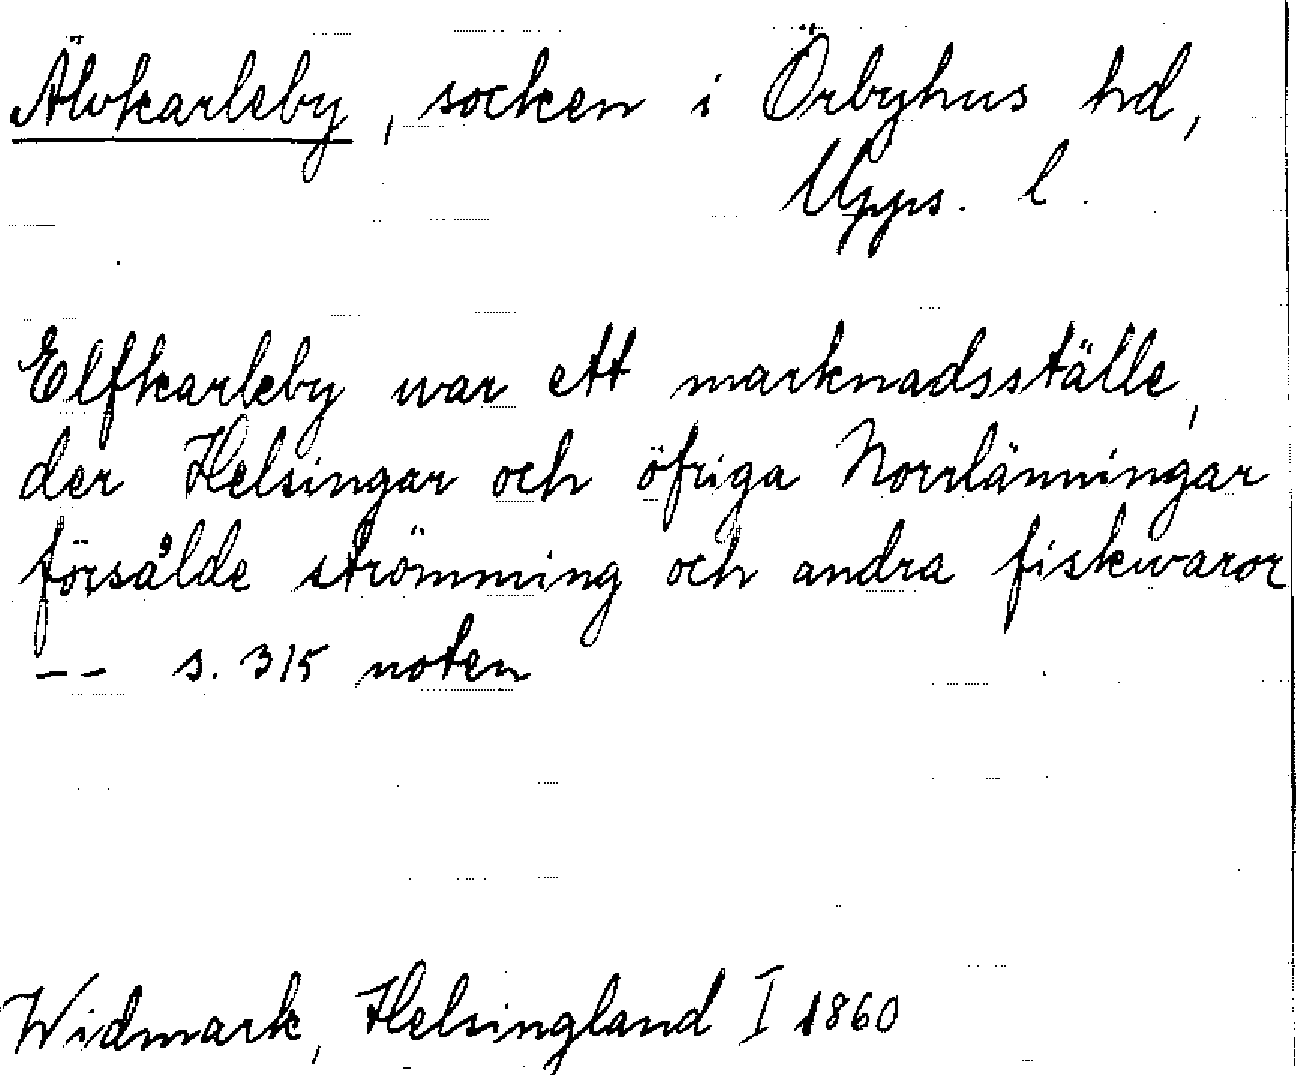 Älvkarleby, socken i Örbyhus hd,
Upps. l.
Elfkarleby war ett marknadsställe,
der Helsingar och öfriga Norrlänningar
försålde strömming och andra fiskwaror
-- s. 315 noten
Widmark, Helsingland I 1860